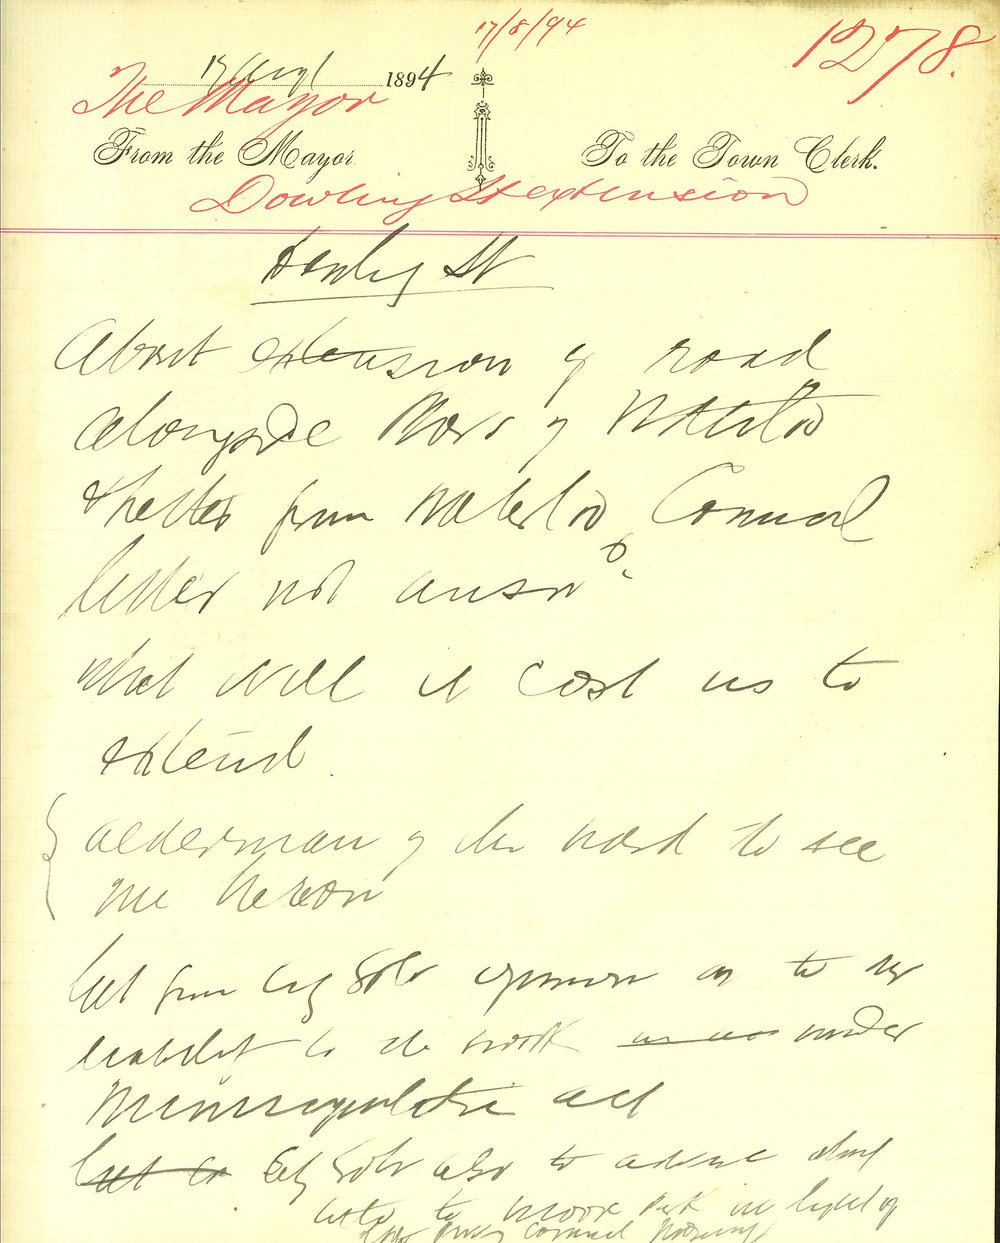 17/8/94
1278.
17 Augt 1894
The Mayor
From the Mayor To the Town Clerk.
Dowling St extension
St
About extension of road
alongside Moore of Waterloo
& letter from Waterloo Council
letter not answd
What will it cost us to
extend.
alderman of the ward to see
me hereon
Get from City Solr opinion as to our
liability to do work under
Municipalities act
Get City Solr also to advise
Moore Park in light of
Privy Council